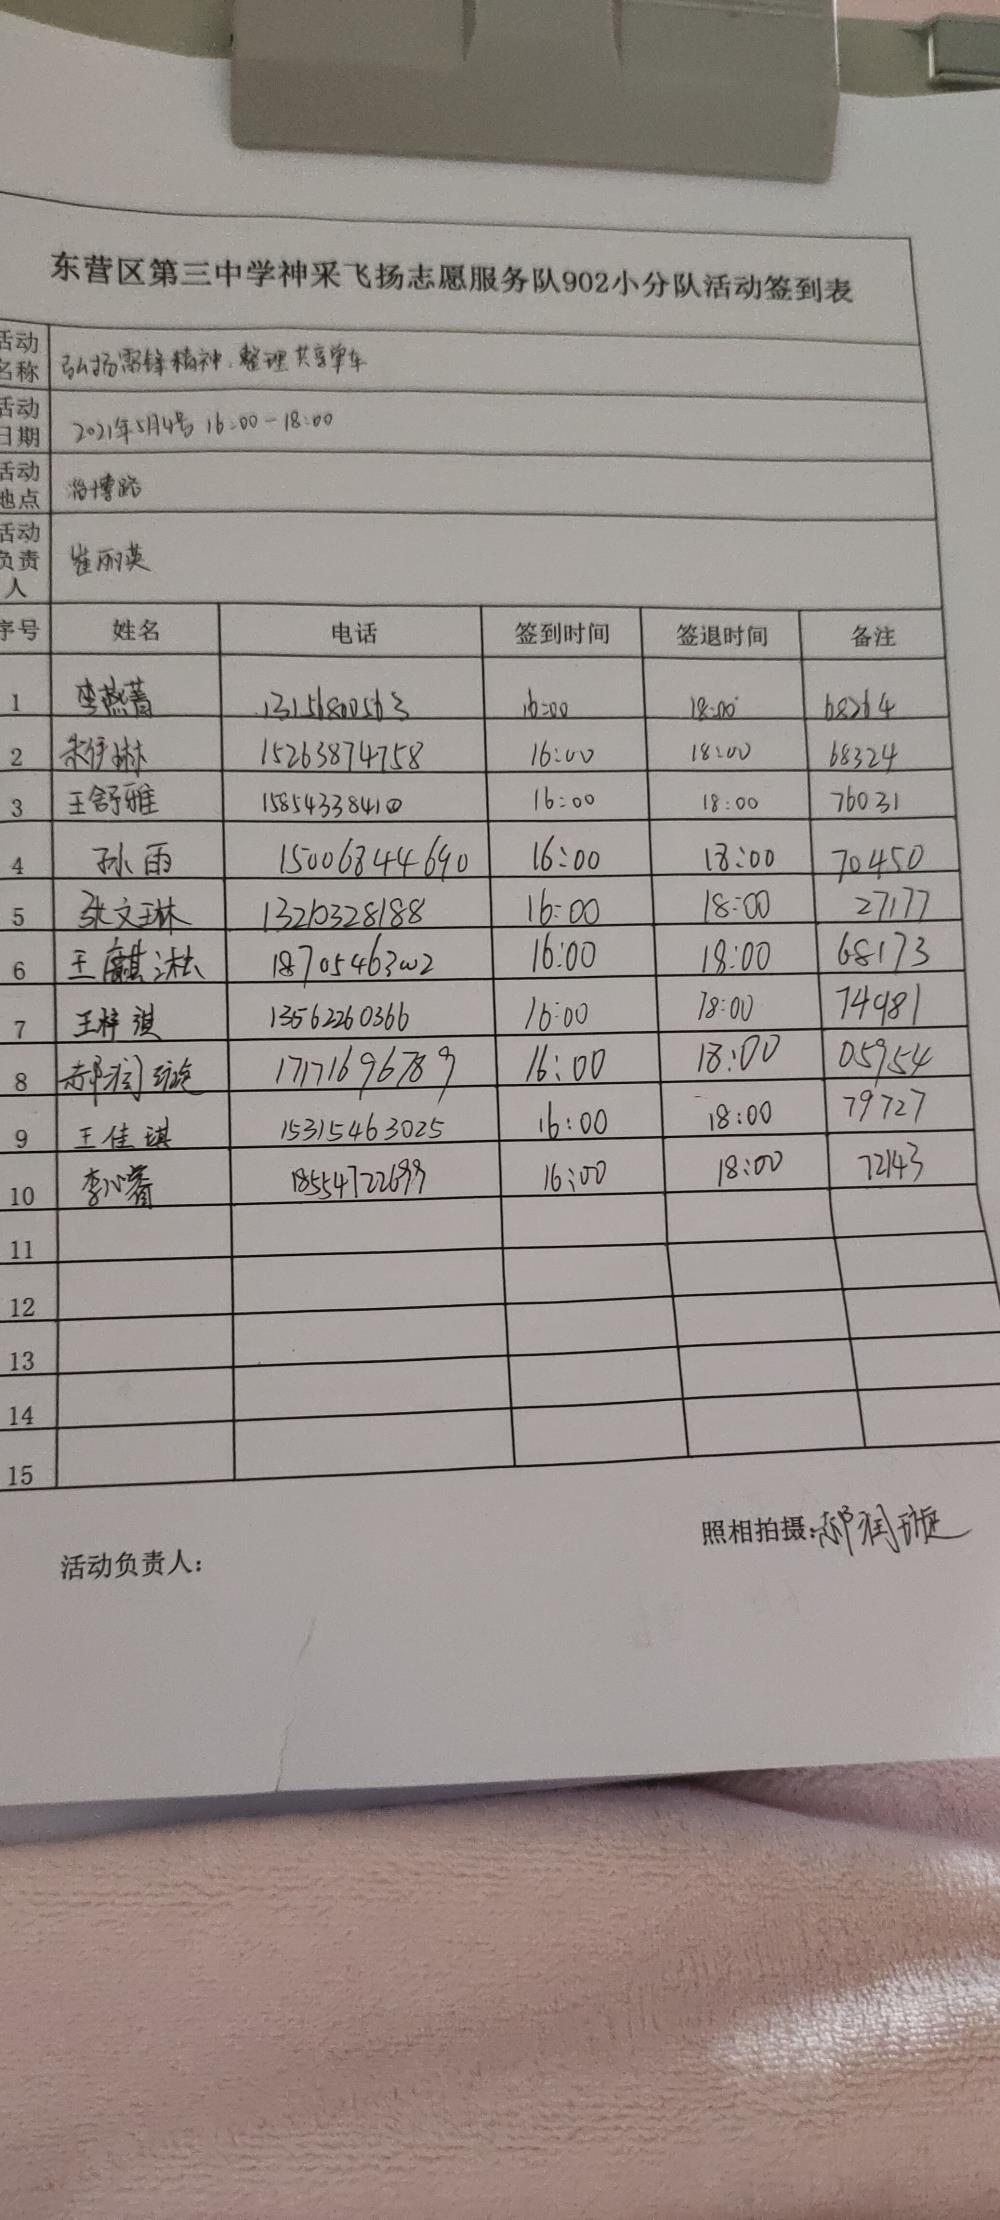 东营区第三中学神采飞扬志愿服务队902小分队活动签到表
活动名称 弘扬雷锋精神、整理共享单车
活动日期 2021年5月4号 16:00-18:00
活动地点 淄博路
活动负责人 崔丽英
序号 姓名 电话 签到时间 签退时间 备注
1 李燕菁 13156800563 16:00 18:00 68264
2 朱伊琳 15263874758 16:00 18:00 68324
3 王舒雅 15854338410 16:00 18:00 76031
4 孙雨 15006844690 16:00 18:00 70450
5 张文琳 13210328188 16:00 18:00 27177
6 王麒淞 18705463002 16:00 18:00 68173
7 王梓淇 13562260366 16:00 18:00 74981
8 郝润璇 17171696789 16:00 18:00 05954
9 王佳琪 15315463025 16:00 18:00 79727
10 李心 18554722699 16:00 18:00 72143
11
12
13
14
15
照相拍摄:郝润璇
活动负责人: